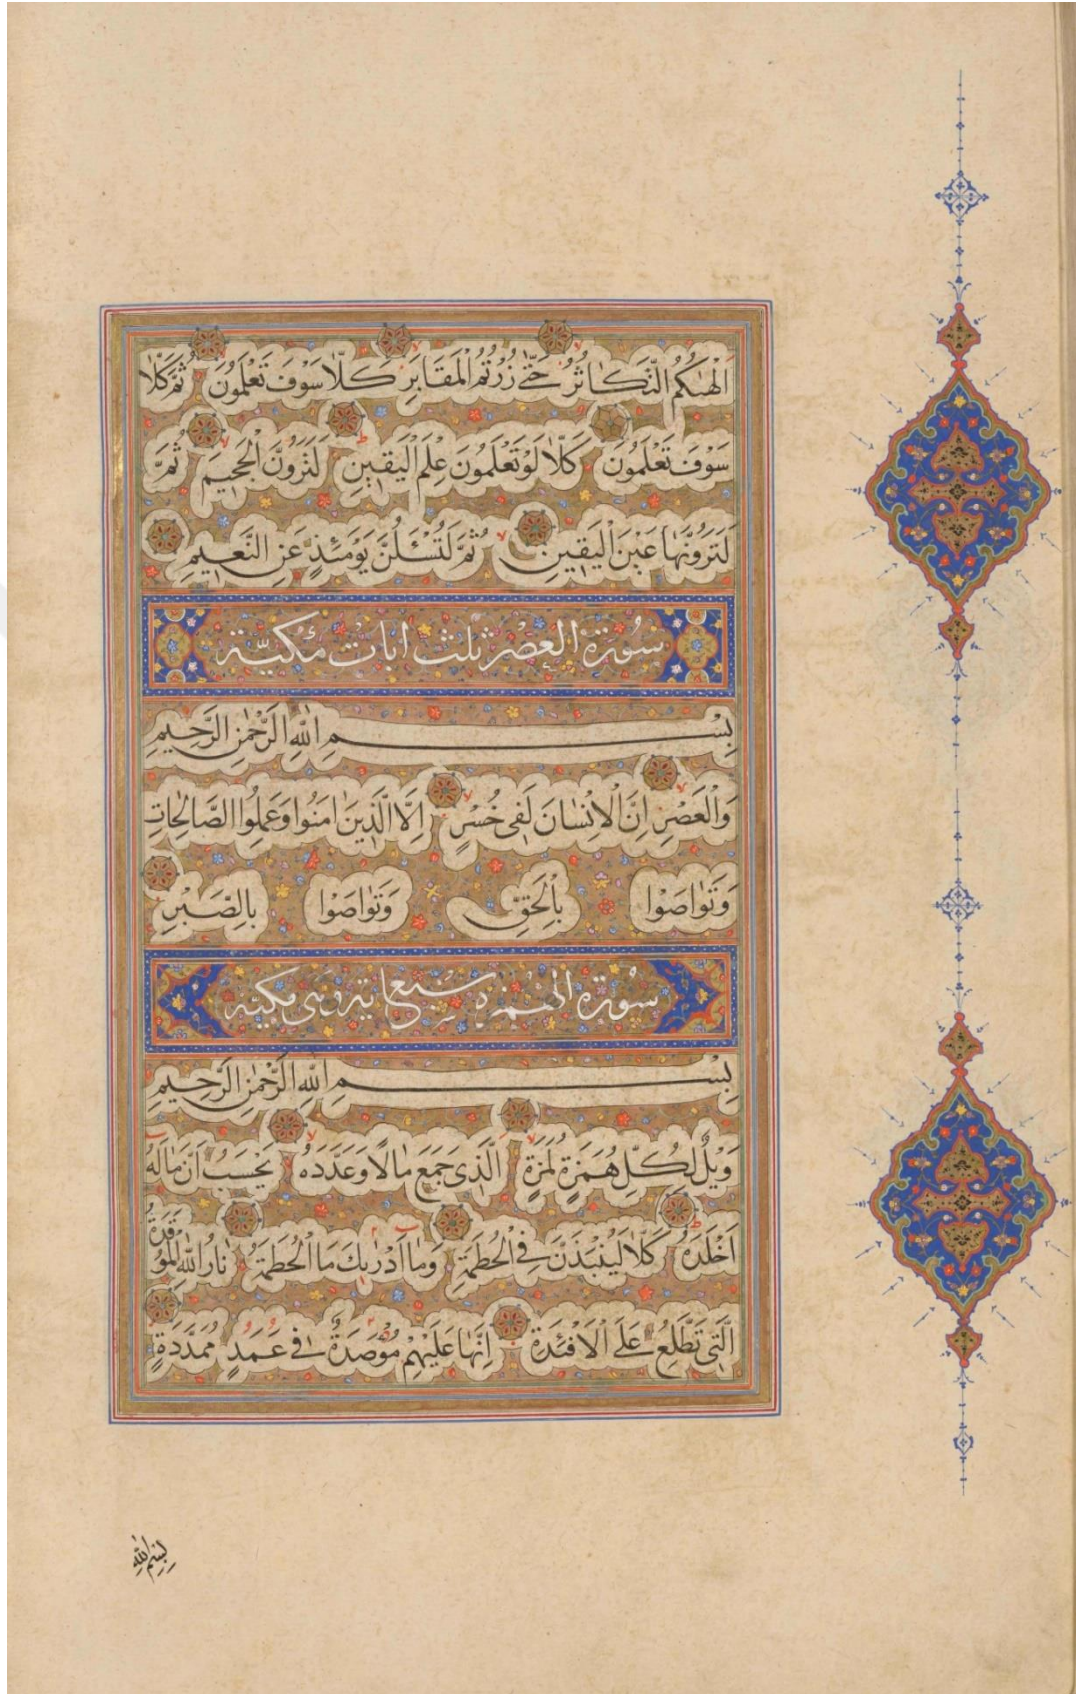 اَلْهٰىكُمُ التَّكَاثُرُ حَتّٰى زُرْتُمُ الْمَقَابِرَ كَلَّا سَوْفَ تَعْلَمُونَ ثُمَّ كَلَّا
سَوْفَ تَعْلَمُونَ كَلَّا لَوْ تَعْلَمُونَ عِلْمَ الْيَقِينِ لَتَرَوُنَّ الْجَحِيمَ ثُمَّ
لَتَرَوُنَّهَا عَيْنَ الْيَقِينِ ثُمَّ لَتُسْـَٔلُنَّ يَوْمَئِذٍ عَنِ النَّعِيمِ
سُورَةُ الْعَصْرِ ثَلٰث اٰيات مَكِّيَّة
بِسْمِ اللّٰهِ الرَّحْمٰنِ الرَّحِيمِ
وَالْعَصْرِ اِنَّ الْاِنْسَانَ لَفِى خُسْرٍ اِلَّا الَّذِينَ اٰمَنُوا وَعَمِلُوا الصَّالِحَاتِ
وَتَوَاصَوْا بِالْحَقِّ وَتَوَاصَوْا بِالصَّبْرِ
سُورَةُ الْهُمَزَة تِسْع اية وهى مكية
بِسْمِ اللّٰهِ الرَّحْمٰنِ الرَّحِيمِ
وَيْلٌ لِكُلِّ هُمَزَةٍ لُمَزَةٍ الَّذِى جَمَعَ مَالًا وَعَدَّدَهُ يَحْسَبُ اَنَّ مَالَهُ
اَخْلَدَهُ كَلَّا لَيُنْبَذَنَّ فِى الْحُطَمَةِ وَمَا اَدْرٰيكَ مَا الْحُطَمَةُ نَارُ اللّٰهِ الْمُوقَدَةُ
الَّتِى تَطَّلِعُ عَلَى الْاَفْئِدَةِ اِنَّهَا عَلَيْهِمْ مُؤْصَدَةٌ فِى عَمَدٍ مُمَدَّدَةٍ
بِسْمِ اللّٰهِ